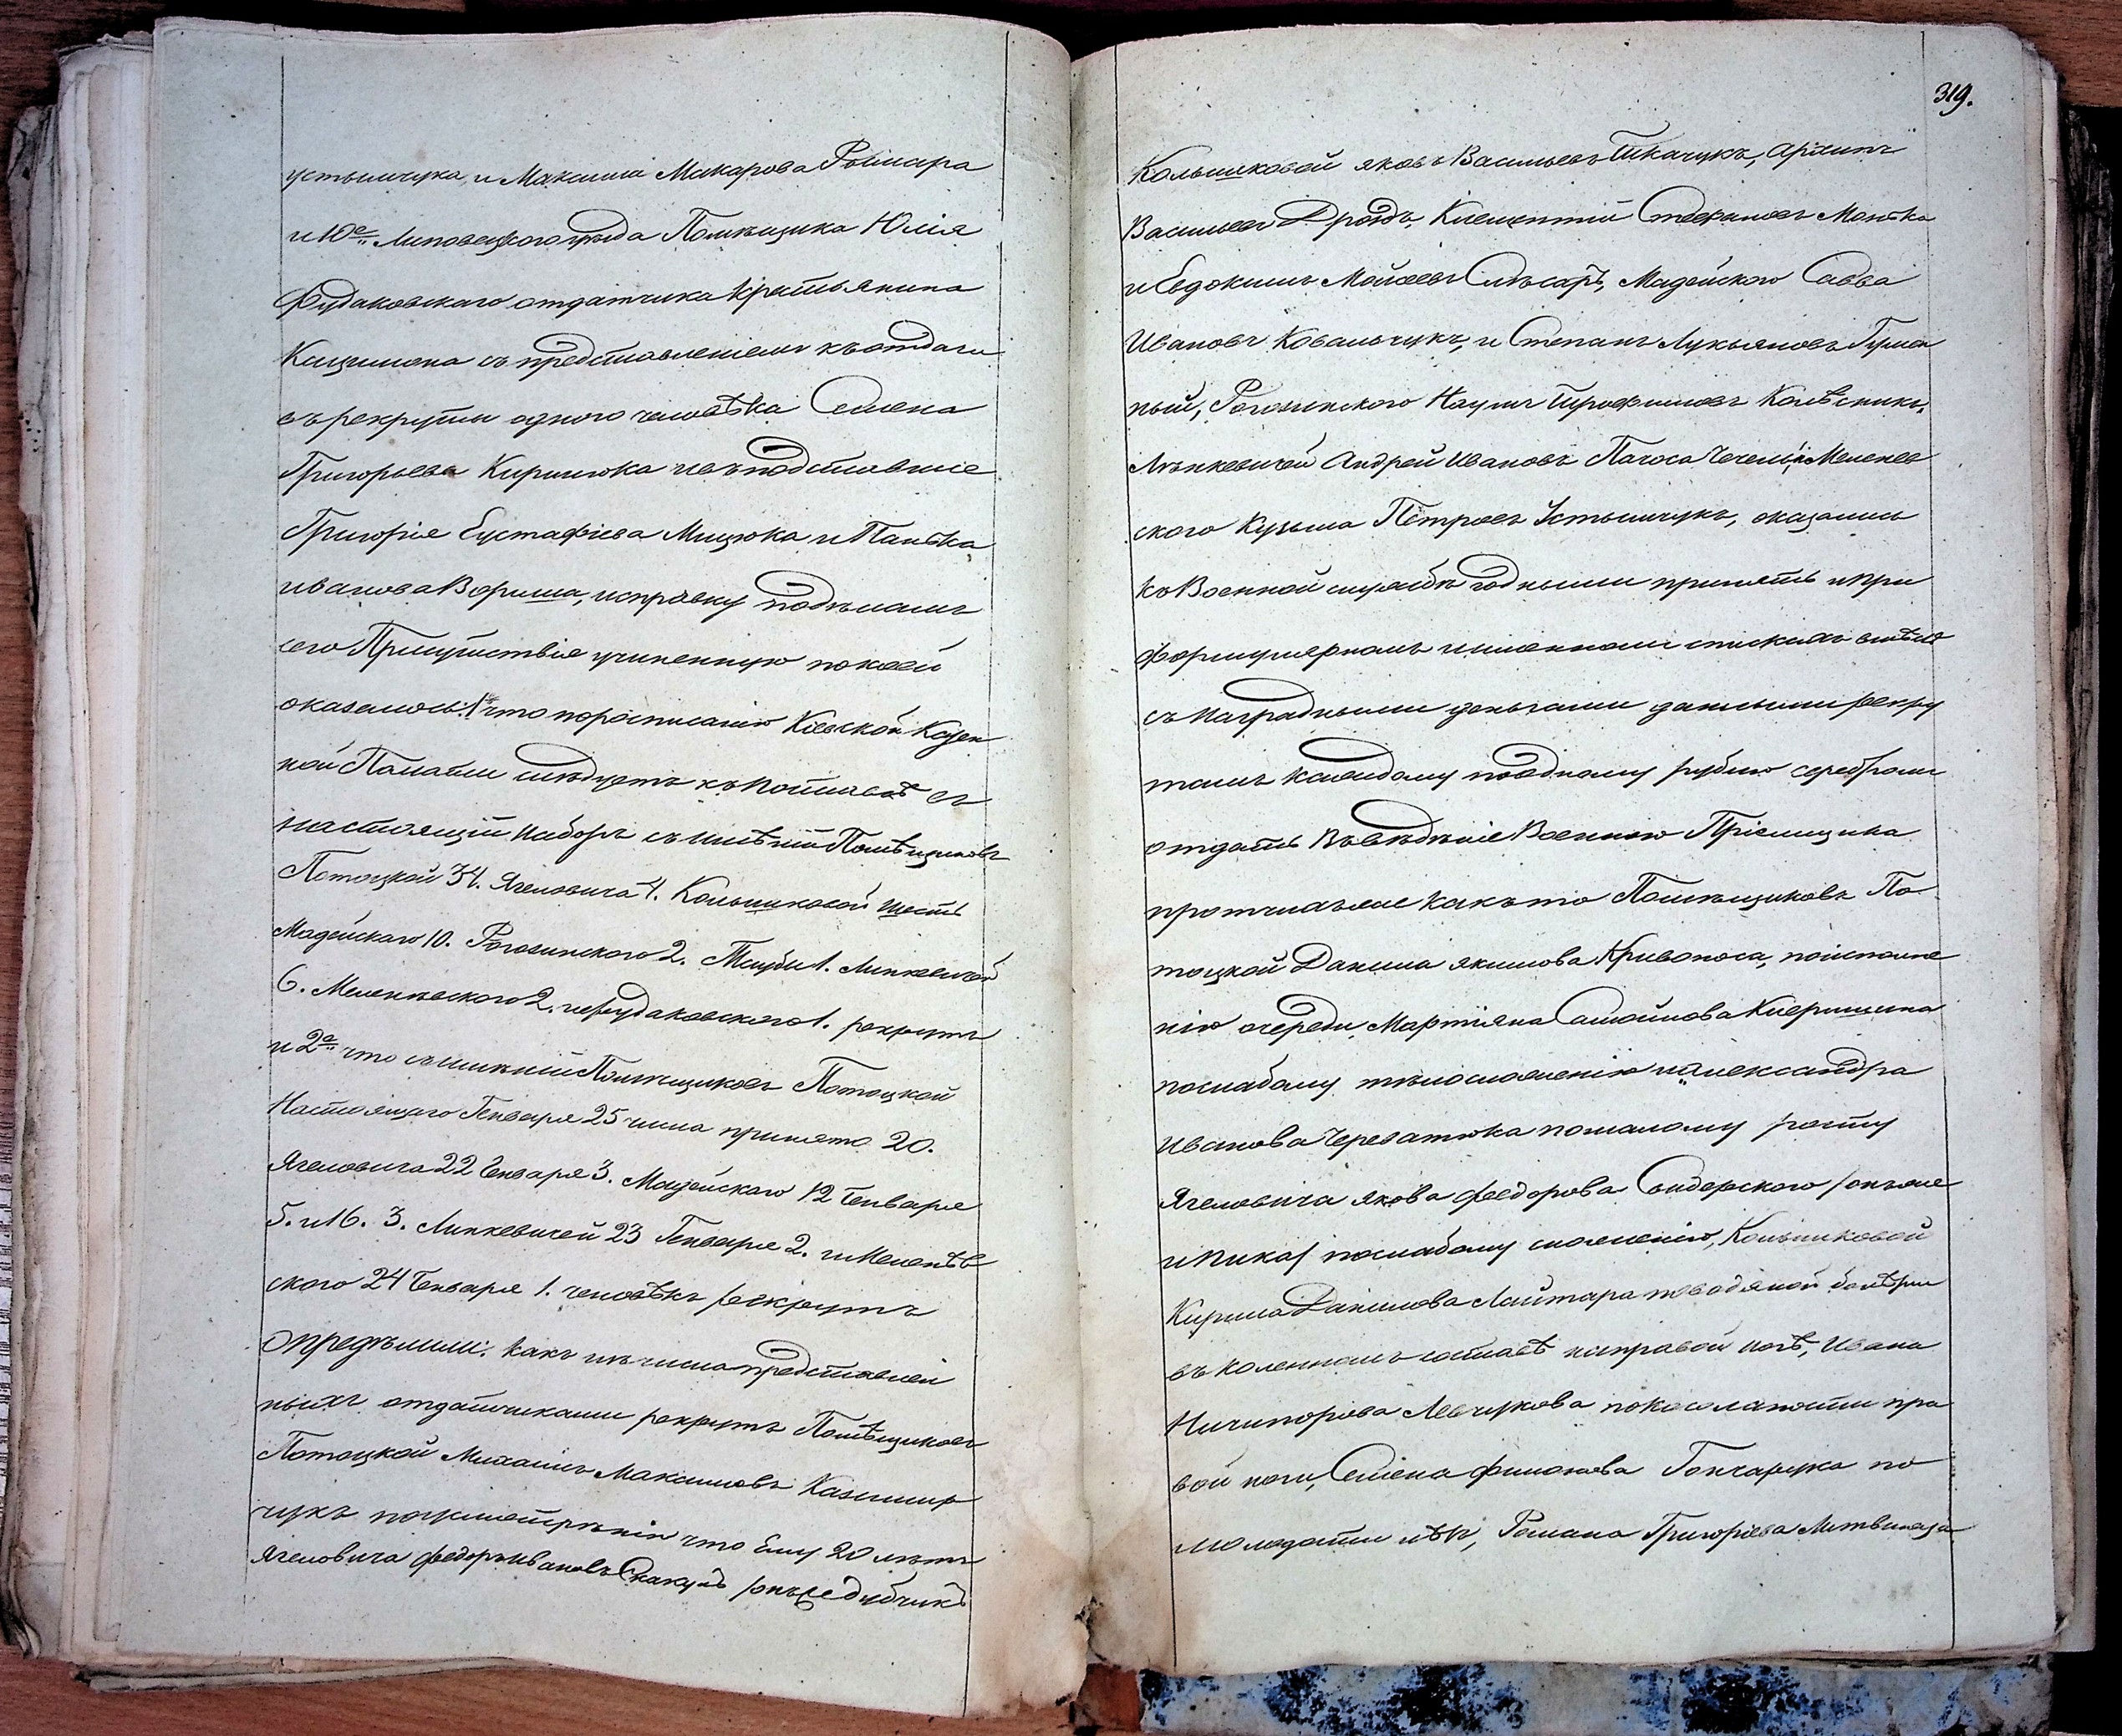 устымчука, и Максима Макарова Рымара
и 10е Липовецкого уезда Помѣщика Юлія
Рудаковскаго отдатчика Крестьянина
съ представленіемъ къ отдачи
въ рекруты одного человѣка Семена
Григорьева Кирилюка и въ подставные
Григорія Еустафіева Мицюка и Панька
иванова Вориша, исправку подѣламъ
сего Присутствія учиненную по коей
оказалось: 1е что по росписанію Кіевской Казен
ной Палаты слѣдуетъ къ поставкѣ въ
настоящій Наборъ съ имѣній Помѣщиковъ
Потоцкой 34. Ягеловича 4. Колышковой шесть
Мадейскаго 10. Рогозинского 2. 1. Линкевичей
6. Меленевского 2. и Рудаковского 1. рекрутъ
и 2е что съ имѣній Помѣщиковъ Потоцкой
Настоящаго Генваря 25 числа принято 20.
Ягеловича 22 Генваря 3. Мадейскаго 12 Генваря
5. и 16. 3. Линкевичей 23 Генваря 2. и Меленѣв
ского 24 Генваря 1. человѣкъ рекрутъ
Опредѣлили: какъ изъ числа представлен
ныхъ отдатчиками рекрутъ Помѣщиковъ
Потоцкой Михаилъ Максимовъ Казимир
чукъ по усмотрѣнію что Ему 20 лѣтъ
Ягеловича федоръ Ивановъ Скакунъ /онъ же дубчикъ
319.
Колышковой яковъ Васильевъ Ткачукъ, Архипъ
Васильевъ Дроздъ, Климентій Стефановъ Монтка
и Евдокимъ Мойсеевъ Слѣсаръ, Мадейского Савва
Ивановъ Ковальчукъ, и Степанъ Лукьяновъ Гумен
ный, Рогозинского Наумъ Трофимовъ Колѣсникъ,
Линкевичей Андрей Ивановъ Меленев
ского Кузьма Петровъ Устымчукъ, оказались
къ Военной службѣ годными принять и при
формулярномъ и именномъ спискахъ вмѣстѣ
съ Наградными деньгами данными рекру
тамъ каждому по одному рублю серебромъ
отдать въ вѣдѣніе Военного Пріемщика
протчихъ же какъ то Помѣщиковъ По
тоцкой Данила якимова Кривоноса, по исполне
нію очереди, Мартіяна Самойлова
по слабому тѣлосложенію и александра
Иванова Черватюка по малому росту
Ягеловича якова федорова Сидерского /онъ же
и Пика/ по слабому сложенію, Колышковой
Кирила Данилова Лаитара по водяной болѣзни
въ коленномъ составѣ на правой ногѣ, Ивана
Ничипорова Левчукова по косолапости пра
вой ноги, Семена филонова Гончарука по
молодости лѣтъ, Романа Григоріева Литвинца